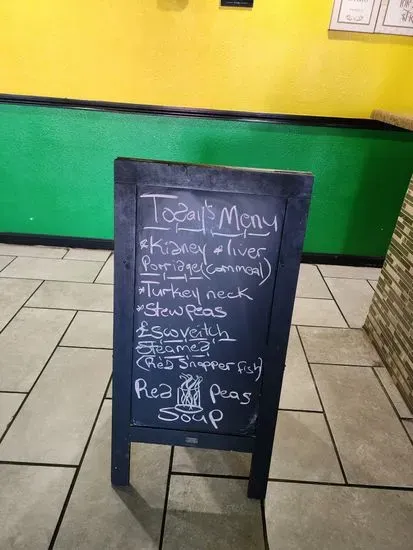 Today's Menu
*Kidney * liver
Porridge (Cornmeal)
*Turkey neck
*Stew peas
Esoveitch
Steamed
(Red Snapper fish)
Red Peas
Soup